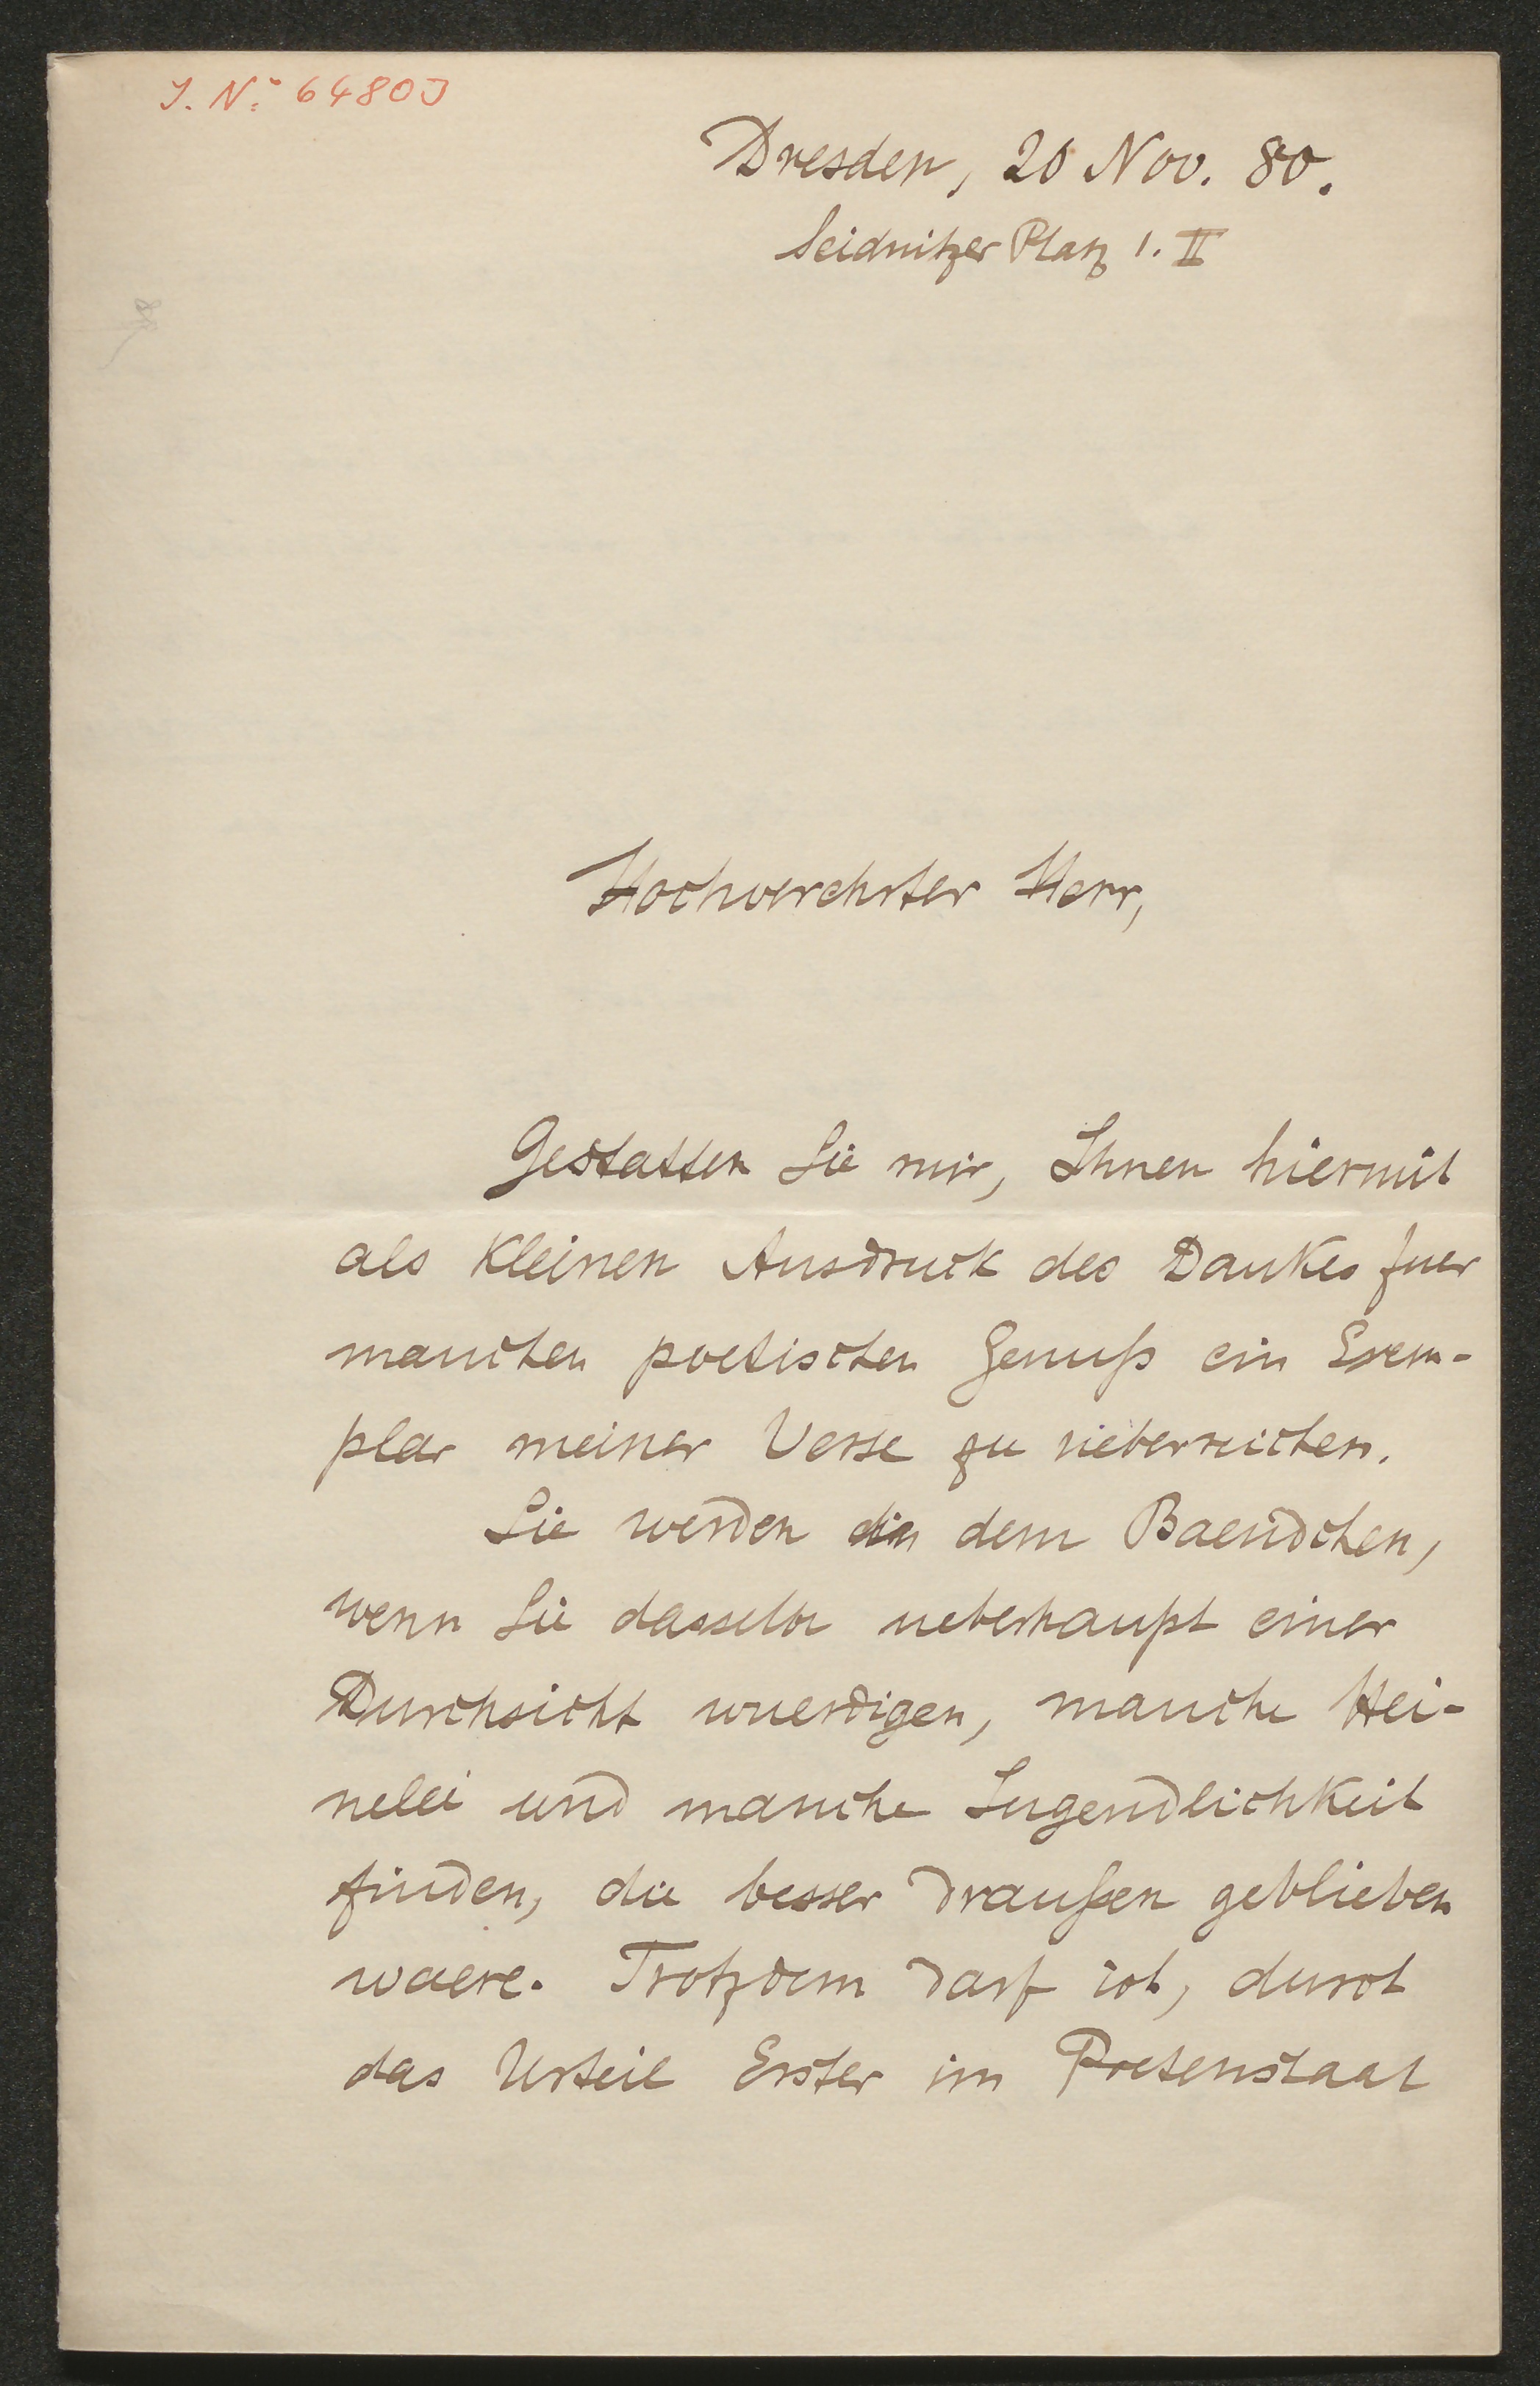 J. N: 64803
Dresden, 20 Nov. 80.
Seidnitzer Platz 1. II
Hochverehrter Herr,
Gestatten Sie mir, Ihnen hiermit
als kleinen Ausdruck des Dankes fuer
manchen poetischen Genuß ein Exem-
plar meiner Verse zu ueberreichen.
Sie werden in dem Baendchen,
wenn Sie dasselbe ueberhaupt einer
Durchsicht wuerdigen, manche Hei-
nelei und manche Jugendlichkeit
finden, die besser draußen geblieben
waere. Trotzdem darf ich, durch
das Urteil Erster im Poetenstaat